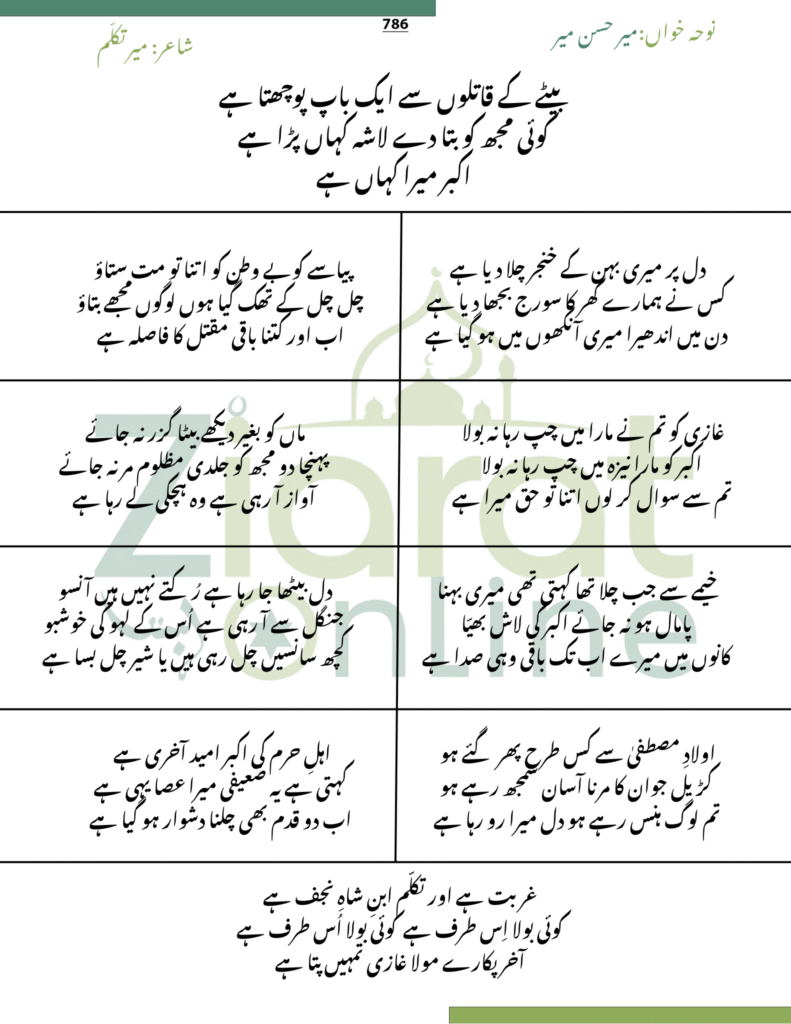 786
نوحہ خواں:میر حسن میر
شاعر: میر تکلّم
بیٹے کے قاتلوں سے ایک باپ پوچھتا ہے
کوئی مجھ کو بتا دے لاشہ کہاں پڑا ہے
اکبر میرا کہاں ہے
دل پر میری بہن کے خنجر چلا دیا ہے
کس نے ہمارے گھر کا سورج بجھا دیا ہے
دن میں اندھیرا میری آنکھوں میں ہو گیا ہے
پیاسے کو بے وطن کو اتنا تو مت ستاؤ
چل چل کے تھک گیا ہوں لوگوں مجھے بتاؤ
اب اور کتنا باقی مقتل کا فاصلہ ہے
غازی کو تم نے مارا میں چپ رہا نہ بولا
اکبر کو مارا نیزہ میں چپ رہا نہ بولا
تم سے سوال کر لوں اتنا تو حق میرا ہے
ماں کو بغیر دیکھے بیٹا گزر نہ جائے
پہنچا دو مجھ کو جلدی مظلوم مر نہ جائے
آواز آ رہی ہے وہ ہچکی لے رہا ہے
خیمے سے جب چلا تھا کہتی تھی میری بہنا
پامال ہو نہ جائے اکبر کی لاش بھیّا
کانوں میں میرے اب تک باقی وہی صدا ہے
دل بیٹھا جا رہا ہے رُکتے نہیں ہیں آنسو
جنگل سے آ رہی ہے اُس کے لہو کی خوشبو
کچھ سانسیں چل رہی ہیں یا شیر چل بسا ہے
اولادِ مصطفیٰ سے کس طرح پھر گئے ہو
کڑیل جوان کا مرنا آسان سمجھ رہے ہو
تم لوگ ہنس رہے ہو دل میرا رو رہا ہے
اہلِ حرم کی اکبر امید آخری ہے
کہتی ہے یہ ضعیفی میرا عصا یہی ہے
اب دو قدم بھی چلنا دشوار ہو گیا ہے
غربت ہے اور تکلّم ابنِ شاہِ نجف ہے
کوئی بولا اِس طرف ہے کوئی بولا اُس طرف ہے
آخر پکارے مولا غازی تمہیں پتا ہے
Ziarat
OnLine